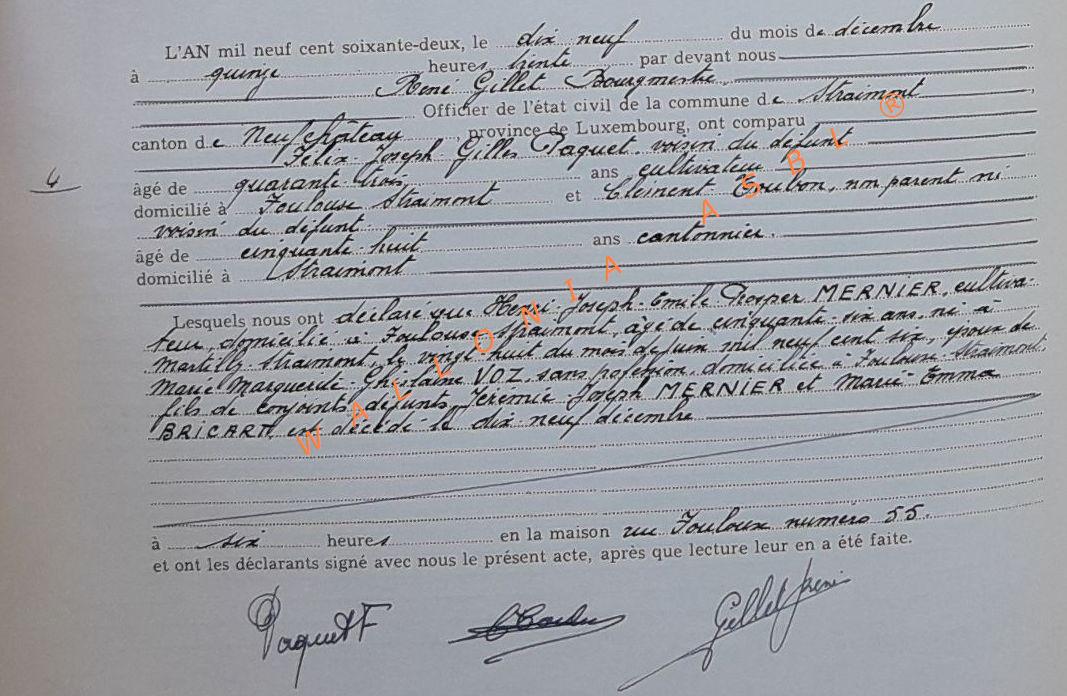 L'AN mil neuf cent soixante-deux, le dix neuf du mois de décembre
à quinze heures trente par devant nous
René Gillet Bourgmestre
Officier de l'état civil de la commune de Straimont
canton de Neufchâteau, province de Luxembourg, ont comparu
Félix-Joseph-Gilles Paquet, voisin du défunt
4
âgé de quarante trois ans cultivateur
domicilié à Toulouse Straimont et Clément non parent ni
voisin du défunt
âgé de cinquante huit ans cantonnier.
domicilié à Straimont
Lesquels nous ont déclaré que Henri-Joseph-Emile Prosper MERNIER, cultiva-
teur, domicilié à Toulouse Straimont, âgé de cinquante-six ans, né à
Martilly Straimont, le vingt huit du mois de juin mil neuf cent six, époux de
Marie Marguerite-Ghislaine VOZ, sans profession, domiciliée à Toulouse-Straimont,
fils de conjoints défunts, Jérémie-Joseph MERNIER et Marie-Emma
BRICART, est décédé le dix neuf décembre
à six heures en la maison rue numéro 55.
et ont les déclarants signé avec nous le présent acte, après que lecture leur en a été faite.
Paquet F
Gillet René
WALLONIA ASBL ®